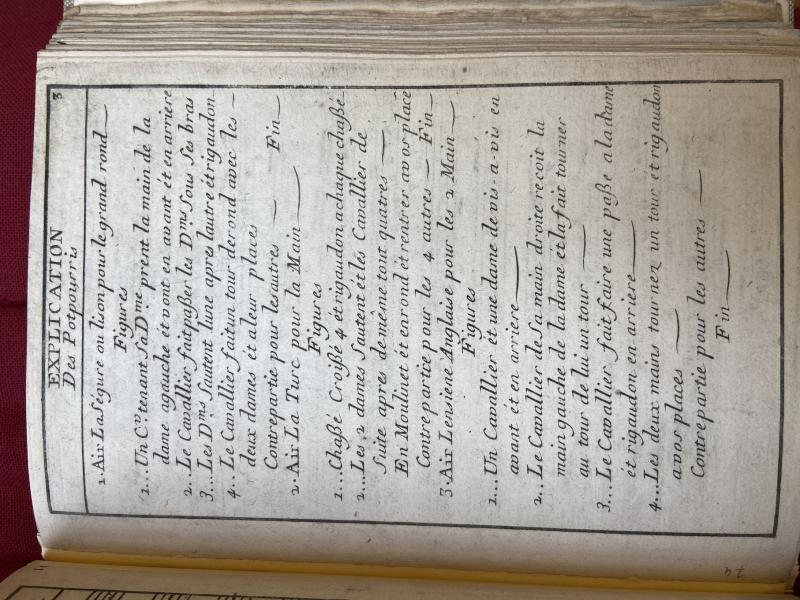 3
EXPLICATION
Des Potpourris
1. Air La Ségure ou lison pour le grand rond
Figures
1... Un C.er tenant Sa D.me prent la main de la
dame agauche ét vont en avant ét en arriere
2.. Le Cavallier fait paßer les D.mes Sous Ses bras
3... Les D.mes Sautent lune apres lautre ét rigaudon
4... Le Cavallier fait un tour de rond avec les
deux dames ét a leur places
Contrepartie pour les autres Fin
2. Air La Turc pour la Main
Figures
1... Chaßé Croißé 4 ét rigaudon a chaque chaßé
2... Les 2 dames Sautent ét les Cavallier de
Suite apres de même tout quatres
En Moulinet ét en rond ét rentrer a vos place
Contrepartie pour les 4 autres Fin
3. Air Lensiene Anglaise pour les 2 Main
Figures
1... Un Cavallier ét une dame de vis-a-vis en
avant ét en arriere
2... Le Cavallier de Sa main droite recoit la
main gauche de la dame et la fait tourner
au tour de lui un tour
3... Le Cavallier fait faire une paße a la dame
et rigaudon en arriere
4... Les deux mains tournez un tour et rigaudon
a vos places
Contrepartie pour les autres
Fin
74